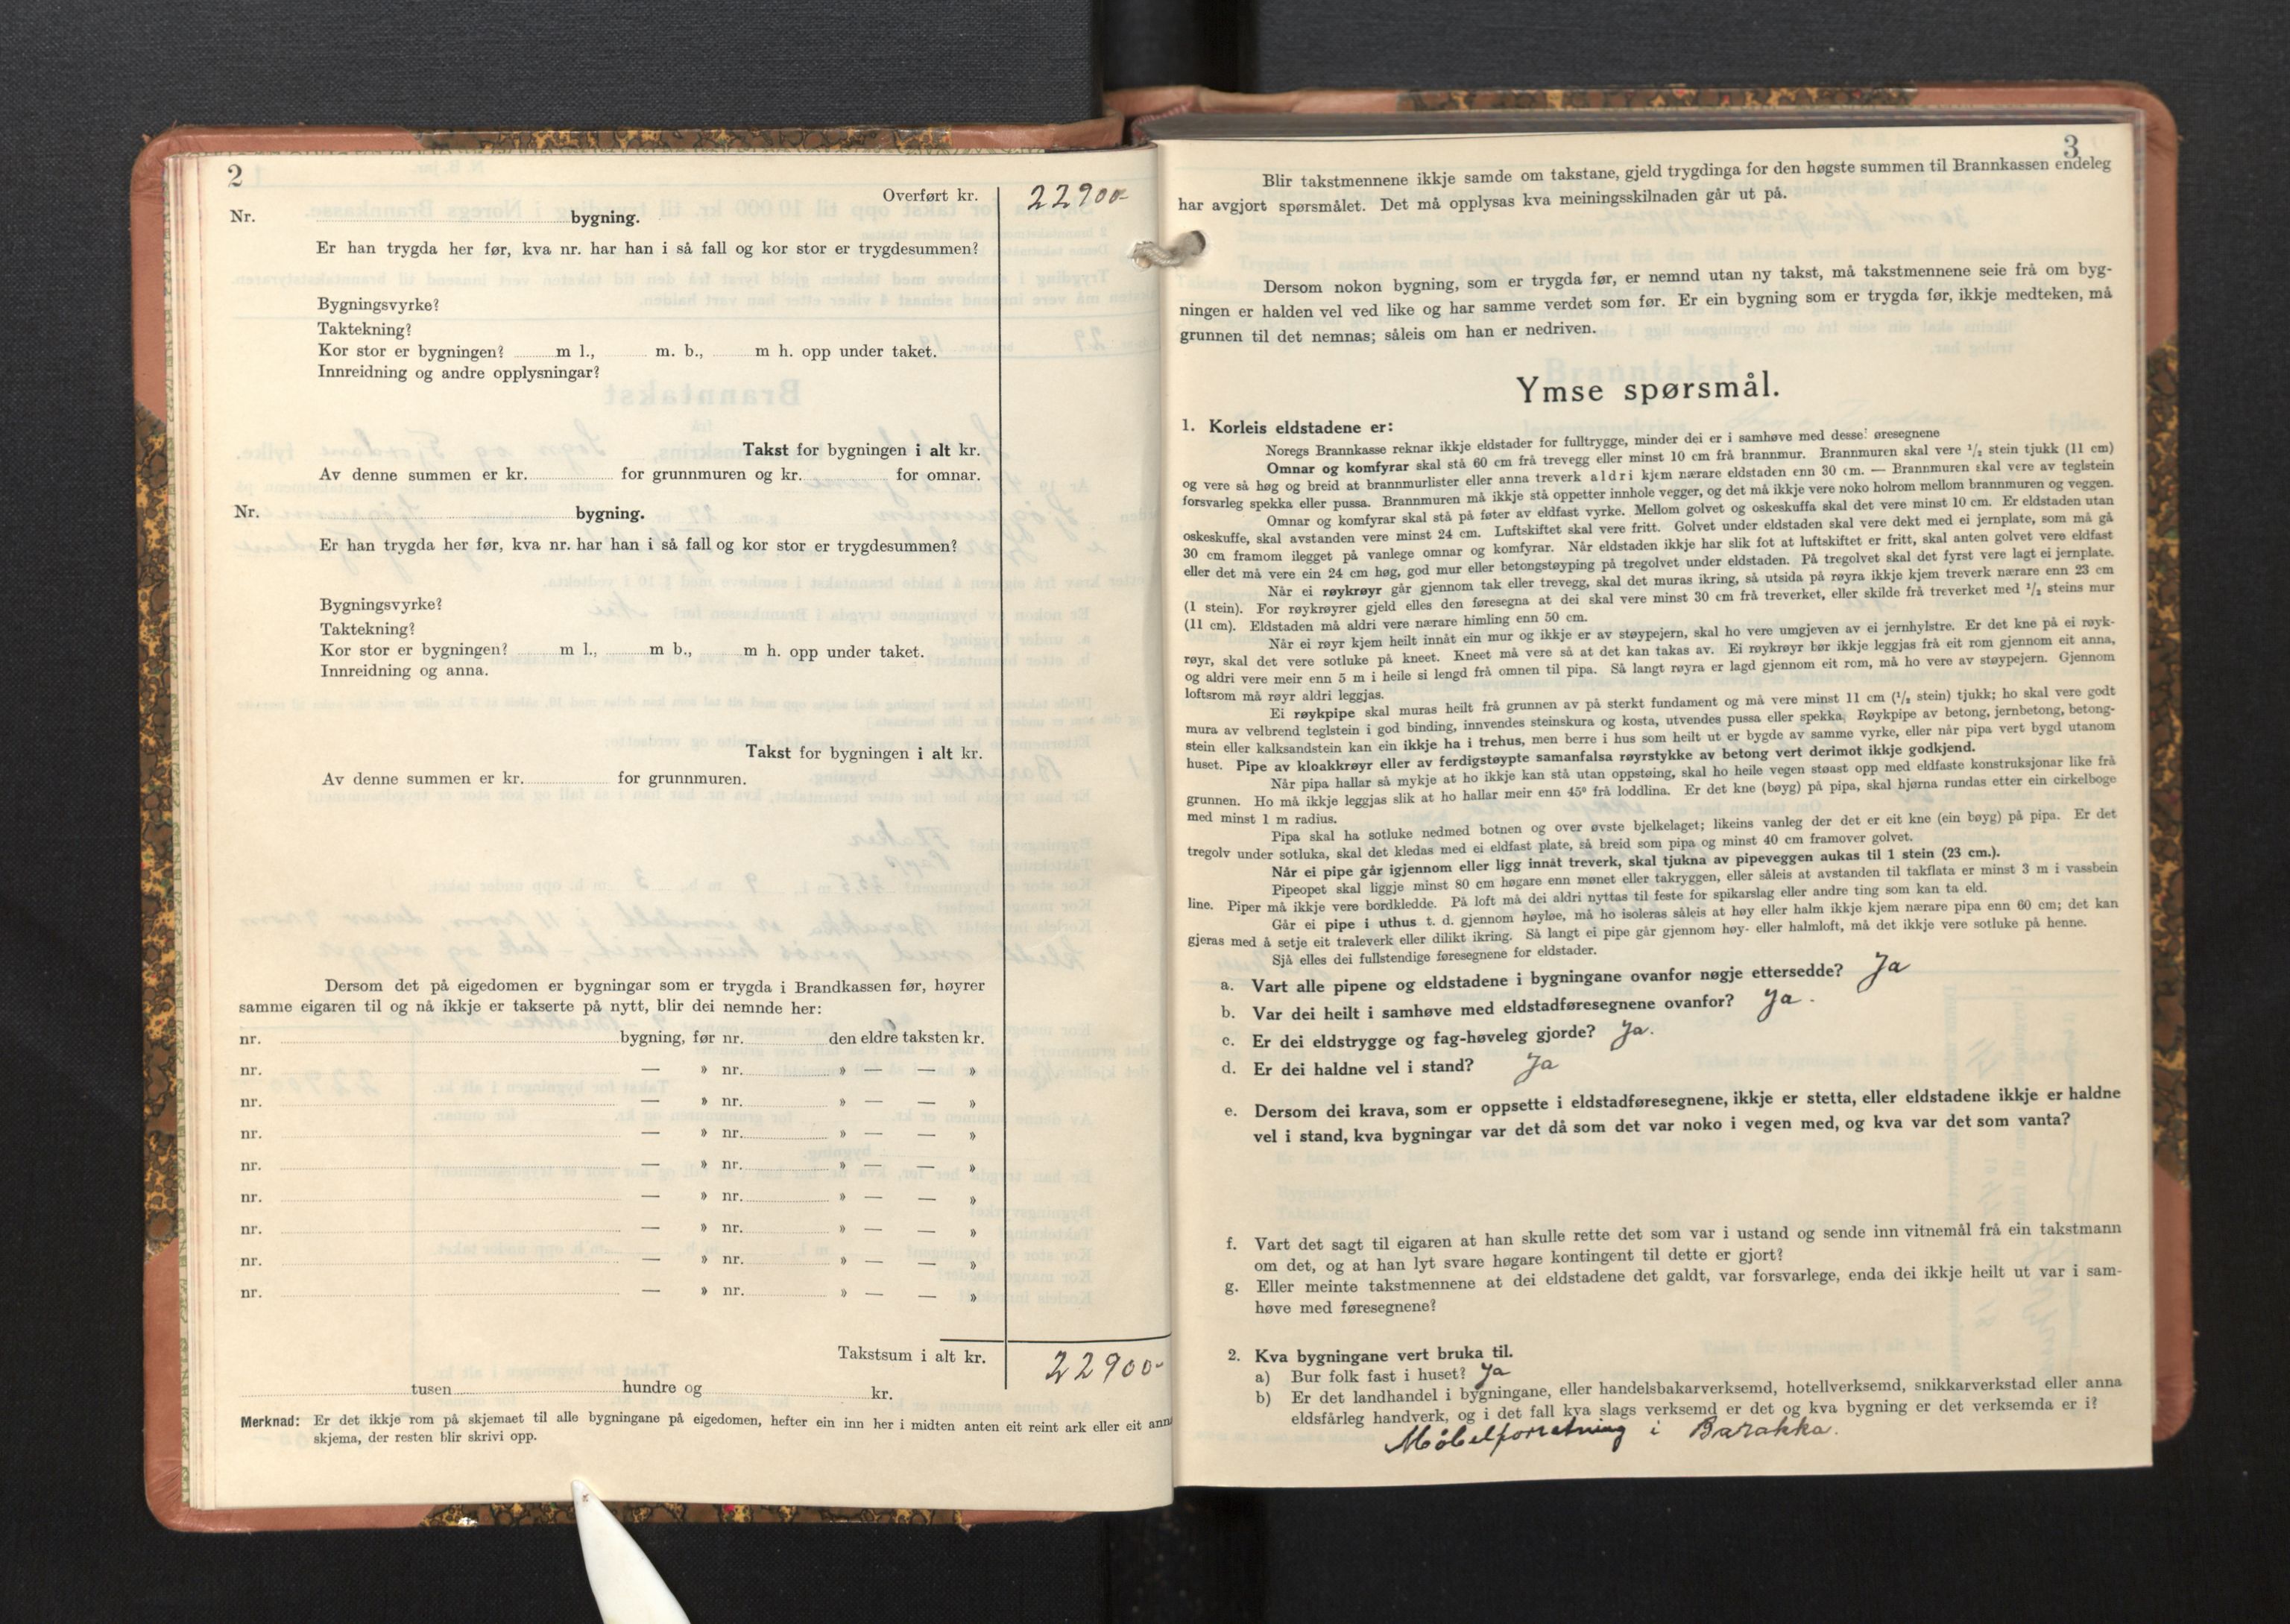 2
Overført kr. 22900-
Nr. bygning.
Er han trygda her før, kva nr. har han i så fall og kor stor er trygdesummen?
Bygningsvyrke?
Taktekning?
Kor stor er bygningen? m l., m. b., m h. opp under taket.
Innreidning og andre opplysningar?
Takst for bygningen i alt kr.
Av denne summen er kr. for grunnmuren og kr. for omnar.
Nr. bygning.
Er han trygda her før, kva nr. har han i så fall og kor stor er trygdesummen?
Bygningsvyrke?
Taktekning?
Kor stor er bygningen? m l., m b., m h. opp under taket.
Innreidning og anna.
Takst for bygningen i alt kr.
Av denne summen er kr. for grunnmuren.
Dersom det på eigedomen er bygningar som er trygda i Brandkassen før, høyrer
samme eigaren til og nå ikkje er takserte på nytt, blir dei nemnde her:
nr. bygning, før nr. den eldre taksten kr.
nr. — » nr. » — — »
nr. — » nr. » — — »
nr. — » nr. » — — »
nr. — » nr. » — — »
nr. — » nr. » — — »
nr. — » nr. » — — »
nr. — » nr. » — — »
nr. — » nr. » — — »
Takstsum i alt kr. 22900-
tusen hundre og kr.
Merknad: Er det ikkje rom på skjemaet til alle bygningane på eigedomen, hefter ein inn her i midten anten eit reint ark eller eit anna
skjema, der resten blir skrivi opp.
3
Blir takstmennene ikkje samde om takstane, gjeld trygdinga for den høgste summen til Brannkassen endeleg
har avgjort spørsmålet. Det må opplysas kva meiningsskilnaden går ut på.
Dersom nokon bygning, som er trygda før, er nemnd utan ny takst, må takstmennene seie frå om byg-
ningen er halden vel ved like og har samme verdet som før. Er ein bygning som er trygda før, ikkje medteken, må
grunnen til det nemnas; såleis om han er nedriven.
Ymse spørsmål.
1. Korleis eldstadene er:
Noregs Brannkasse reknar ikkje eldstader for fulltrygge, minder dei er i samhøve med desse øresegnene
Omnar og komfyrar skal stå 60 cm frå trevegg eller minst 10 cm frå brannmur. Brannmuren skal vere 1/2 stein tjukk (11 cm)
og vere så høg og breid at brannmurlister eller anna treverk aldri kjem nærare eldstaden enn 30 cm. — Brannmuren skal vere av teglstein
forsvarleg spekka eller pussa. Brannmuren må ikkje stå oppetter innhole vegger, og det må ikkje vere noko holrom mellom brannmuren og veggen.
Omnar og komfyrar skal stå på føter av eldfast vyrke. Mellom golvet og oskeskuffa skal det vere minst 10 cm. Er eldstaden utan
oskeskuffe, skal avstanden vere minst 24 cm. Luftskiftet skal vere fritt. Golvet under eldstaden skal vere dekt med ei jernplate, som må gå
30 cm framom ilegget på vanlege omnar og komfyrar. Når eldstaden ikkje har slik fot at luftskiftet er fritt, skal anten golvet vere eldfast
eller det må vere ein 24 cm høg, god mur eller betongstøyping på tregolvet under eldstaden. På tregolvet skal det fyrst vere lagt ei jernplate.
Når ei røykrøyr går gjennom tak eller trevegg, skal det muras ikring, så utsida på røyra ikkje kjem treverk nærare enn 23 cm
(1 stein). For røykrøyrer gjeld elles den føresegna at dei skal vere minst 30 cm frå treverket, eller skilde frå treverket med 1/2 steins mur
(11 cm). Eldstaden må aldri vere nærare himling enn 50 cm.
Når ei røyr kjem heilt innåt ein mur og ikkje er av støypejern, skal ho vere umgjeven av ei jernhylstre. Er det kne på ei røyk-
røyr, skal det vere sotluke på kneet. Kneet må vere så at det kan takas av. Ei røykrøyr bør ikkje leggjas frå eit rom gjennom eit anna,
og aldri vere meir enn 5 m i heile si lengd frå omnen til pipa. Så langt røyra er lagd gjennom eit rom, må ho vere av støypejern. Gjennom
loftsrom må røyr aldri leggjas.
Ei røykpipe skal muras heilt frå grunnen av på sterkt fundament og må vere minst 11 cm (1/2 stein) tjukk; ho skal vere godt
mura av velbrend teglstein i god binding, innvendes steinskura og kosta, utvendes pussa eller spekka. Røykpipe av betong, jernbetong, betong-
stein eller kalksandstein kan ein ikkje ha i trehus, men berre i hus som heilt ut er bygde av samme vyrke, eller når pipa vert bygd utanom
huset. Pipe av kloakkrøyr eller av ferdigstøypte samanfalsa røyrstykke av betong vert derimot ikkje godkjend.
Når pipa hallar så mykje at ho ikkje kan stå utan oppstøing, skal ho heile vegen støast opp med eldfaste konstruksjonar like frå
grunnen. Ho må ikkje leggjas slik at ho hallar meir enn 45° frå loddlina. Er det kne (bøyg) på pipa, skal hjørna rundas etter ein cirkelboge
med minst 1 m radius.
Pipa skal ha sotluke nedmed botnen og over øvste bjelkelaget; likeins vanleg der det er eit kne (ein bøyg) på pipa. Er det
tregolv under sotluka, skal det kledas med ei eldfast plate, så breid som pipa og minst 40 cm framover golvet.
Når ei pipe går igjennom eller ligg innåt treverk, skal tjukna av pipeveggen aukas til 1 stein (23 cm.).
Pipeopet skal liggje minst 80 cm høgare enn mønet eller takryggen, eller såleis at avstanden til takflata er minst 3 m i vassbein
line. Piper må ikkje vere bordkledde. På loft må dei aldri nyttas til feste for spikarslag eller andre ting som kan ta eld.
Går ei pipe i uthus t. d. gjennom høyløe, må ho isoleras såleis at høy eller halm ikkje kjem nærare pipa enn 60 cm; det kan
gjeras med å setje eit traleverk eller dilikt ikring. Så langt ei pipe går gjennom høy- eller halmloft, må det ikkje vere sotluke på henne.
Sjå elles dei fullstendige føresegnene for eldstader.
a. Vart alle pipene og eldstadene i bygningane ovanfor nøgje ettersedde? Ja
b. Var dei heilt i samhøve med eldstadføresegnene ovanfor? Ja.
c. Er dei eldstrygge og fag-høveleg gjorde? Ja.
d. Er dei haldne vel i stand? Ja
e. Dersom dei krava, som er oppsette i eldstadføresegnene, ikkje er stetta, eller eldstadene ikkje er haldne
vel i stand, kva bygningar var det då som det var noko i vegen med, og kva var det som vanta?
f. Vart det sagt til eigaren at han skulle rette det som var i ustand og sende inn vitnemål frå ein takstmann
om det, og at han lyt svare høgare kontingent til dette er gjort?
g. Eller meinte takstmennene at dei eldstadene det galdt, var forsvarlege, enda dei ikkje heilt ut var i sam-
høve med føresegnene?
2. Kva bygningane vert bruka til.
a) Bur folk fast i huset? Ja
b) Er det landhandel i bygningane, eller handelsbakarverksemd, hotellverksemd, snikkarverkstad eller anna
eldsfårleg handverk, og i det fall kva slags verksemd er det og kva bygning er det verksemda er i?
Møbelforretning i Barakka.